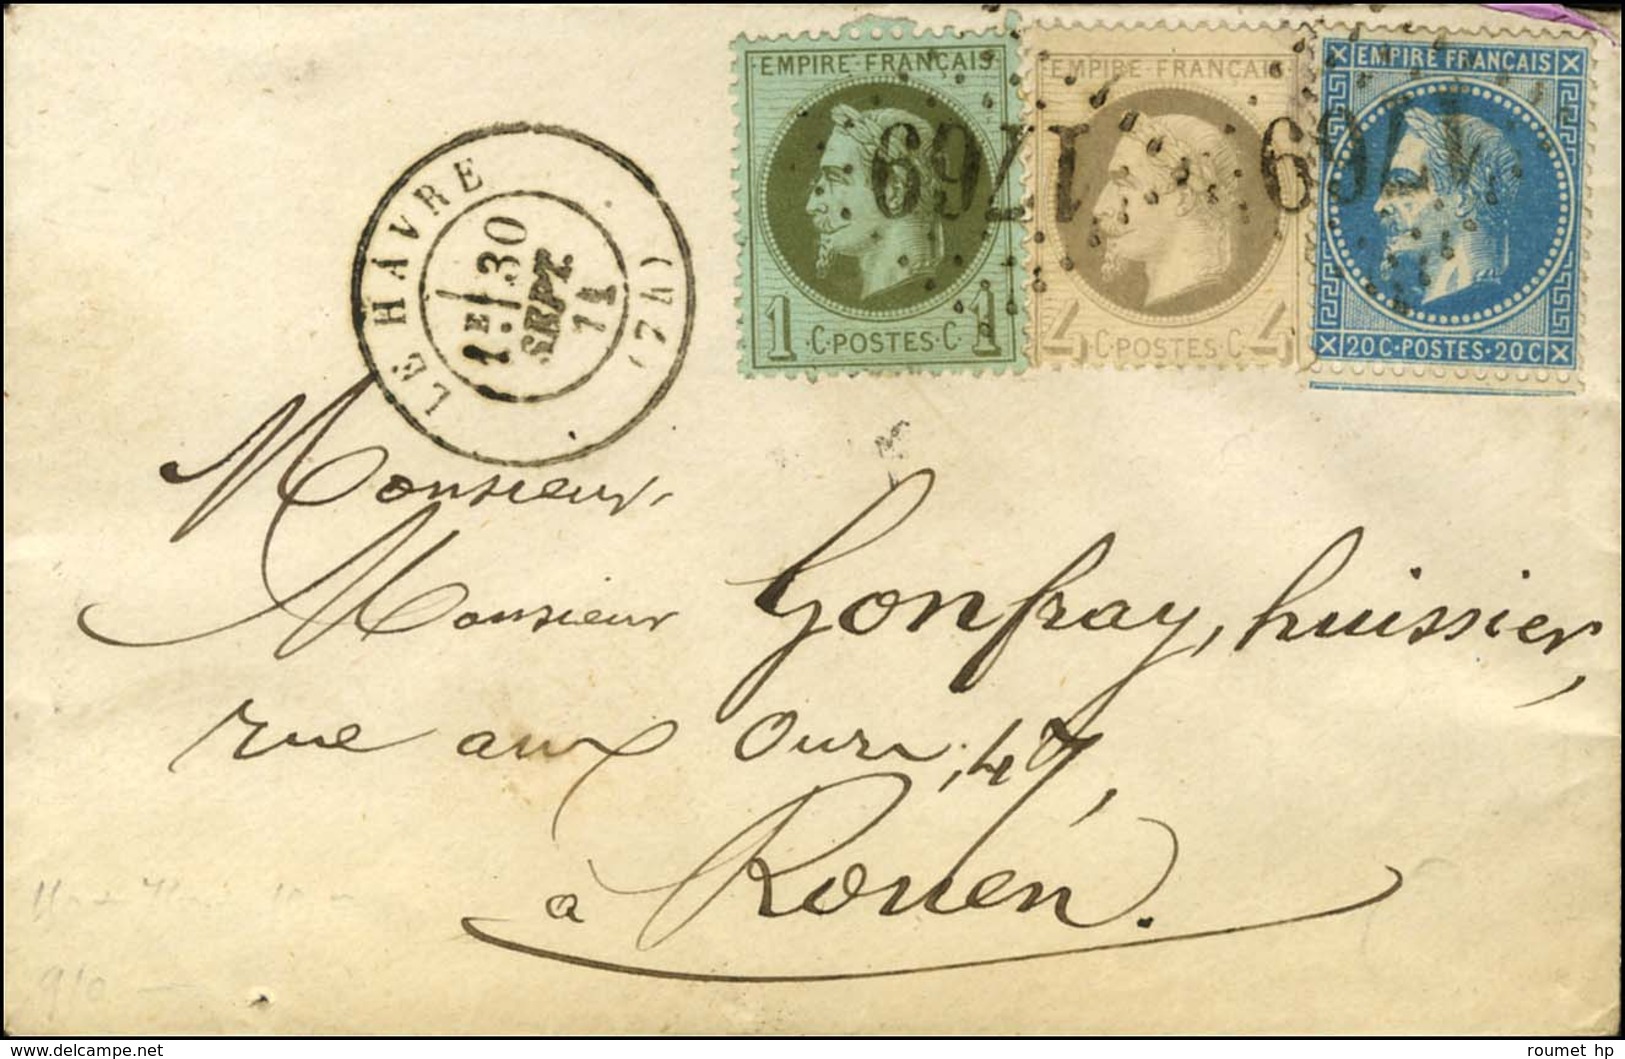 EMPIRE·FRANÇAIS
EMPIRE·FRANÇAIS
EMPIRE FRANÇAIS
1769
1769
1 ·C·POSTES·C· 1
4 C POSTES C 4
20 C·POSTES·20 C
LE HAVRE
1E/
30
SEPT.
71
(74)
Monsieur
Monsieur Gonfray, huissier,
rue aux Ours, 47,
à Rouen.
910
roumet hp